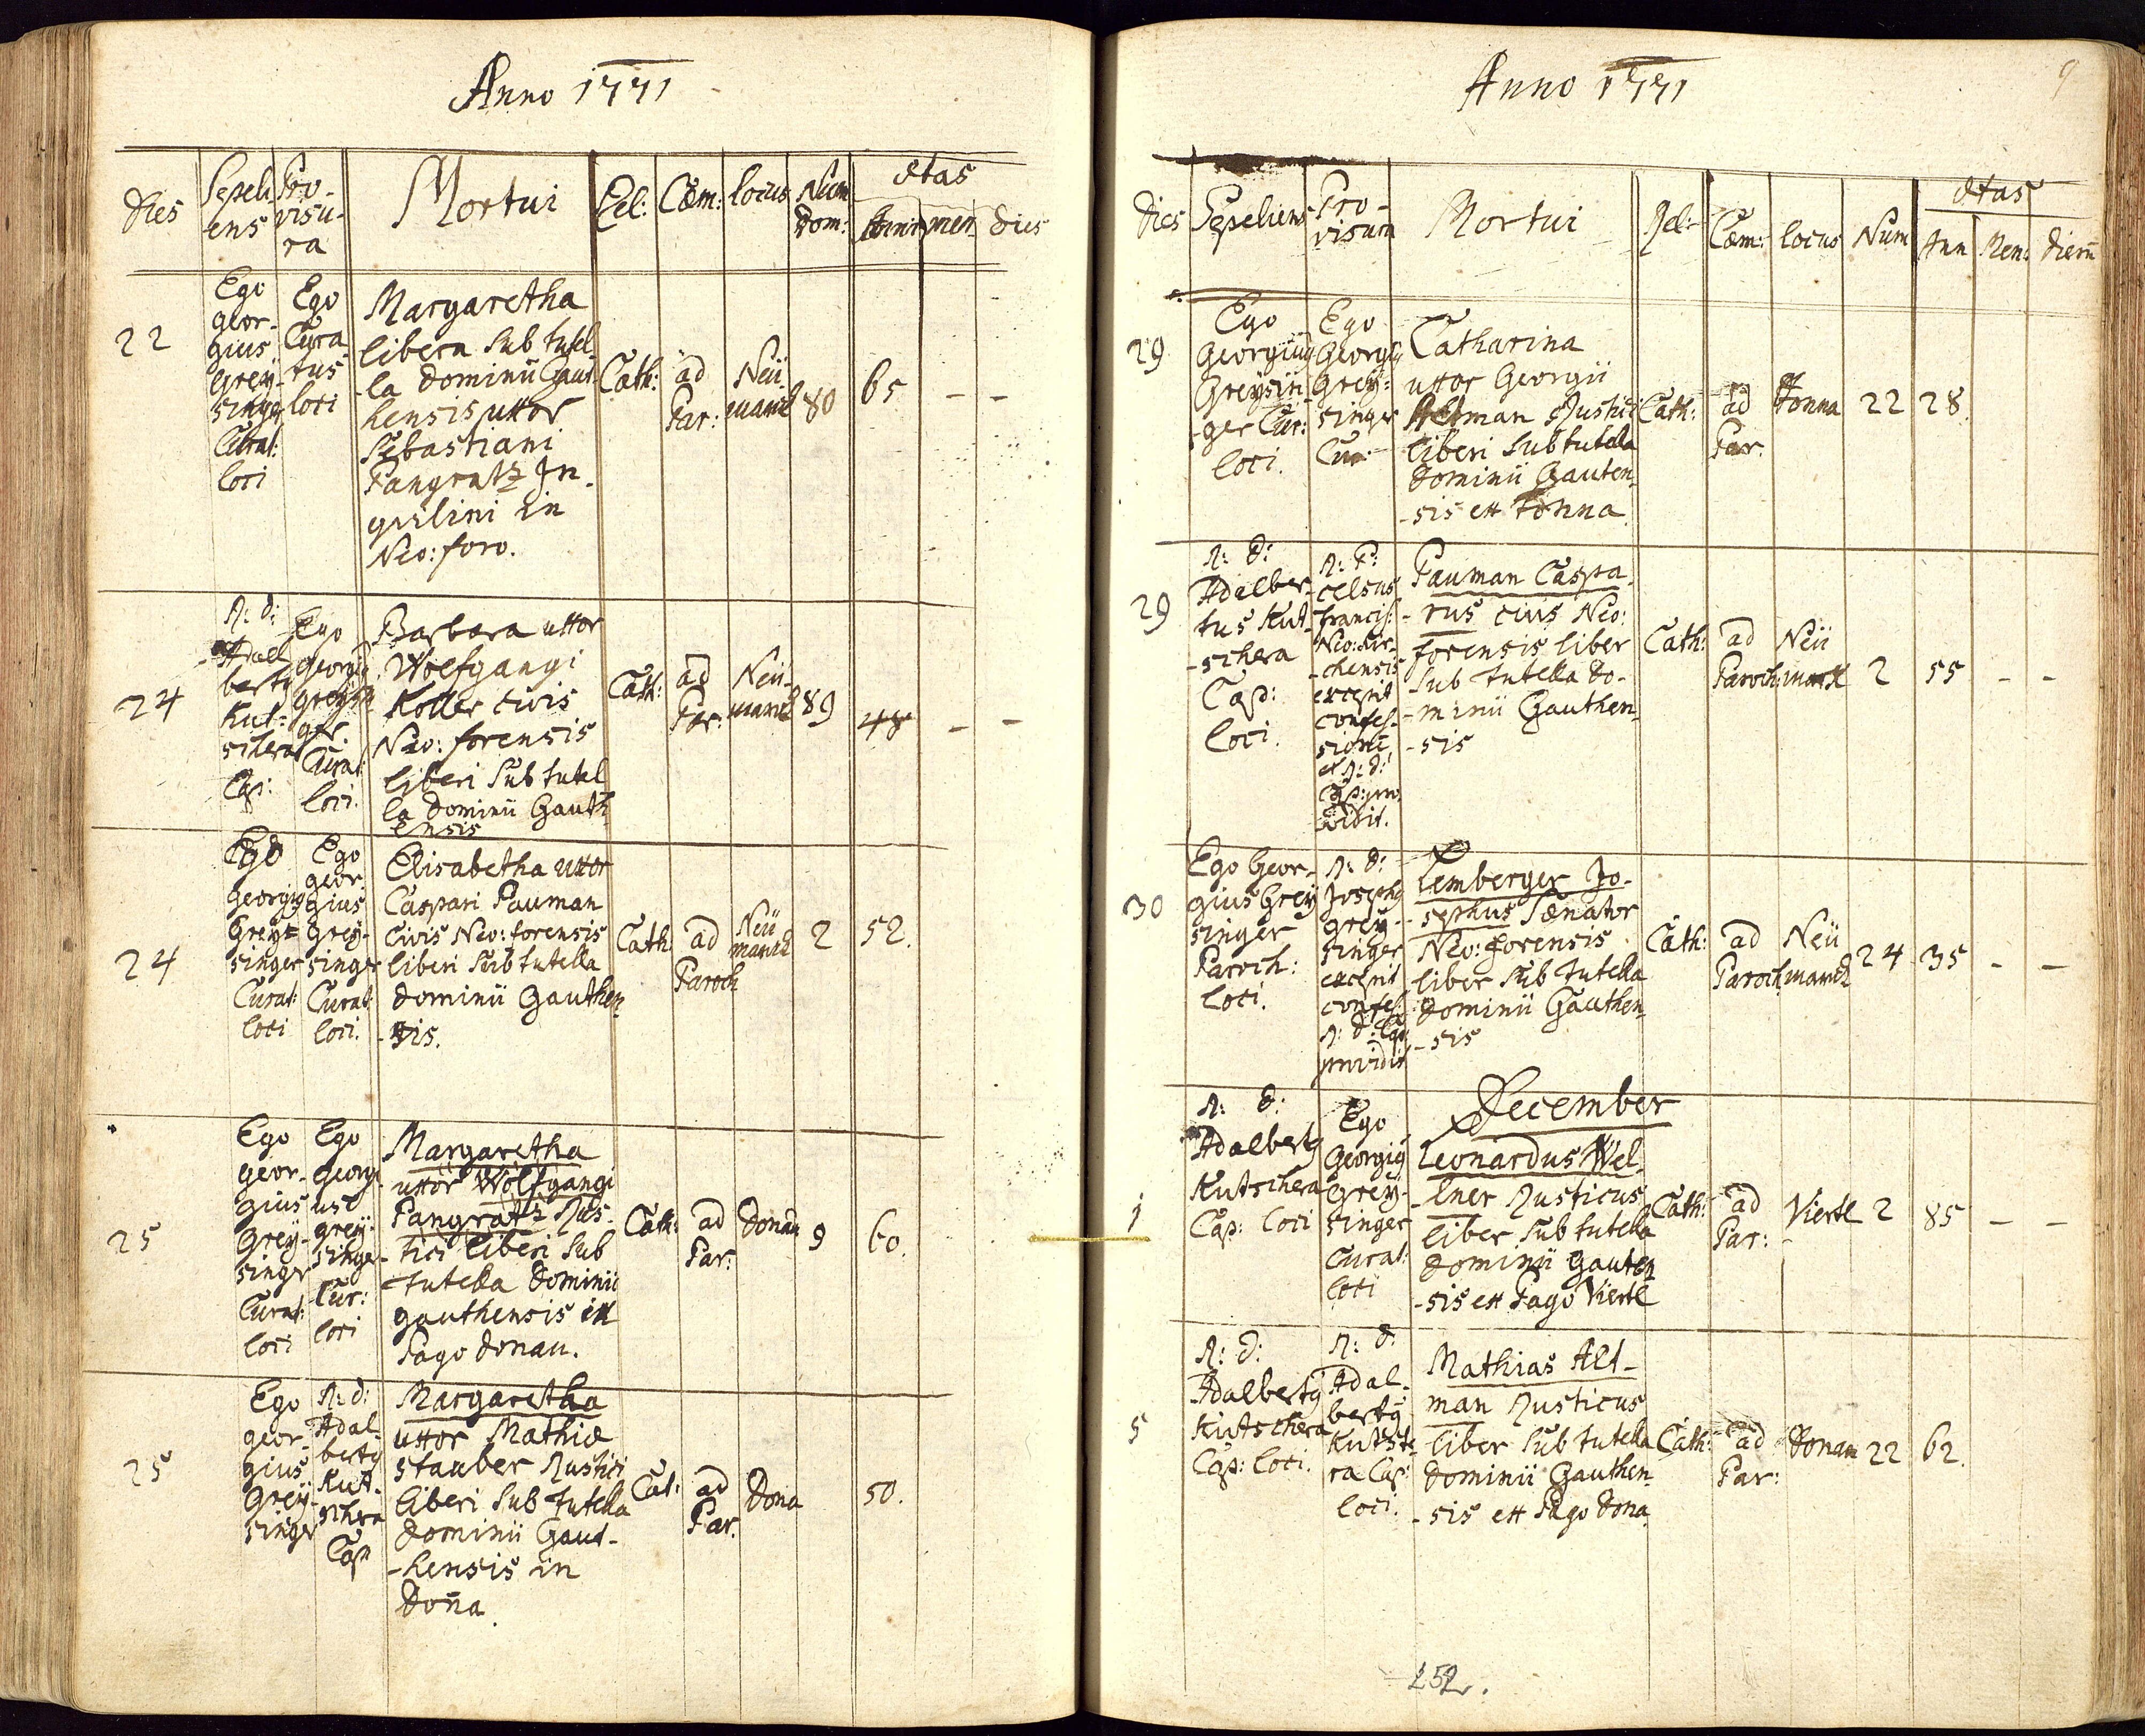 Anno 1771
Dies
Sepeli
ens
Pro-
visu-
ra
Mortui
Rel:
Cæm:
locus
Num
Dom:
Ætas
Anni
men
dies
22
Ego
Geor-
gius
Greÿ-
singer
Curat:
loci
Ego
Cura
tus
loci
Margaretha
libera Sub tutel
la Dominii Gaut
hensis uxor
Sebastiani
Pangratz In-
quilini in
Neo: foro.
Cath:
ad
Par:
Neü
marck
80
65
-
-
24
R: D:
Adal
bertg
Kut-
schera
Cap:
Ego
Georgig
Greysin
ger.
Curat
loci.
Barbara uxor
Wolfgangi
Koller civis
Neo: forensis
liberi Sub tutel
la Dominii Gauth
ensis
Cath:
ad
Par:
Neü-
marck
89
48
-
-
24
Ego
Georgig
Greÿ-
singer
Curat:
loci
Ego
Geor
gius
Greÿ-
singer
Curat:
loci.
Elisabetha uxor
Caspari Pauman
Civis Neo: forensis
liberi Sub tutella
Dominii Gauthen
-sis.
Cath:
ad
Paroch
Neü
marck
2
52.
25
Ego
Geor-
gius
Greÿ-
singer
Curat:
loci
Ego
Georgi
us
Greÿ-
singe
Cur:
loci
Margaretha
uxor Wolfgangi
Pangratz Rus-
tici liberi Sub
tutella Dominii
Gauthensis ex
Pago Donau.
Cath:
ad
Par:
Donau
9
60.
25
Ego
Geor-
gius
Greÿ-
singer
R: D:
Adal
bertg
Kut-
schera
Cap
Margaretha
uxor Mathiæ
Stauber Rustici
liberi Sub tutella
Dominii Gaut-
-hensis in
Donna
Cat:
ad
Par.
Dona
50.
Anno 1771
9
Dies
Sepeliens
Pro-
visura
Mortui
Rel:
Cæm:
locus
Num
Ætas
Ann
Men:
Dierum
29
Ego
Georgius
Greÿsin
-ger Cur:
loci.
Ego
Georgig
Greÿ-
singer
Cur
Catharina
uxor Georgii
Altman Rustici
liberi Sub tutella
Dominii Gauten
-sis ex Tonna
Cath:
ad
Par.
Tonna
22
28.
29
R: D:
Adalber-
tus Kut
-schera
Cap:
loci.
R: P:
Celsus
Francis:
Neo: kir-
-chensis
excepit
confes-
sione
et R: D:
Cap: pro
vidit.
Pauman Caspa
-rus civis Neo:
forensis liber
Sub tutella Do-
-minii Gauthen
-sis
Cath:
ad
Paroch
Neü
marck
2
55
-
-
30
Ego Geor-
gius Greÿ
singer
Paroch:
loci.
R: D:
Josephg
Greÿ-
singer
excepit
confes:
R: D: Cap
providit
Lemberger Jo-
-sephus Senator
Neo: forensis
liber Sub tutella
Dominii Gauthen
-sis
Cath:
ad
Paroch
Neü
marck
24
35
-
-
December
1
R: D:
Adalbertg
Kutschera
Cap: loci
Ego
Georgig
Greÿ-
singer
Curat:
loci
Leonardus Wel
-lner Rusticus
liber Sub tutella
Dominii Gauten
-sis ex Pago Viertl
Cath:
ad
Par:
Viertl
2
85
-
-
5
R: D:
Adalbertg
Kutschera
Cap: loci.
R: D.
Adal-
bertg
Kutsche
ra Cap:
loci.
Mathias Alt-
man Rusticus
liber Sub tutella
Dominii Gauthen
-sis ex Pago Dona
Cath:
ad
Par:
Donam
22
62.
252.